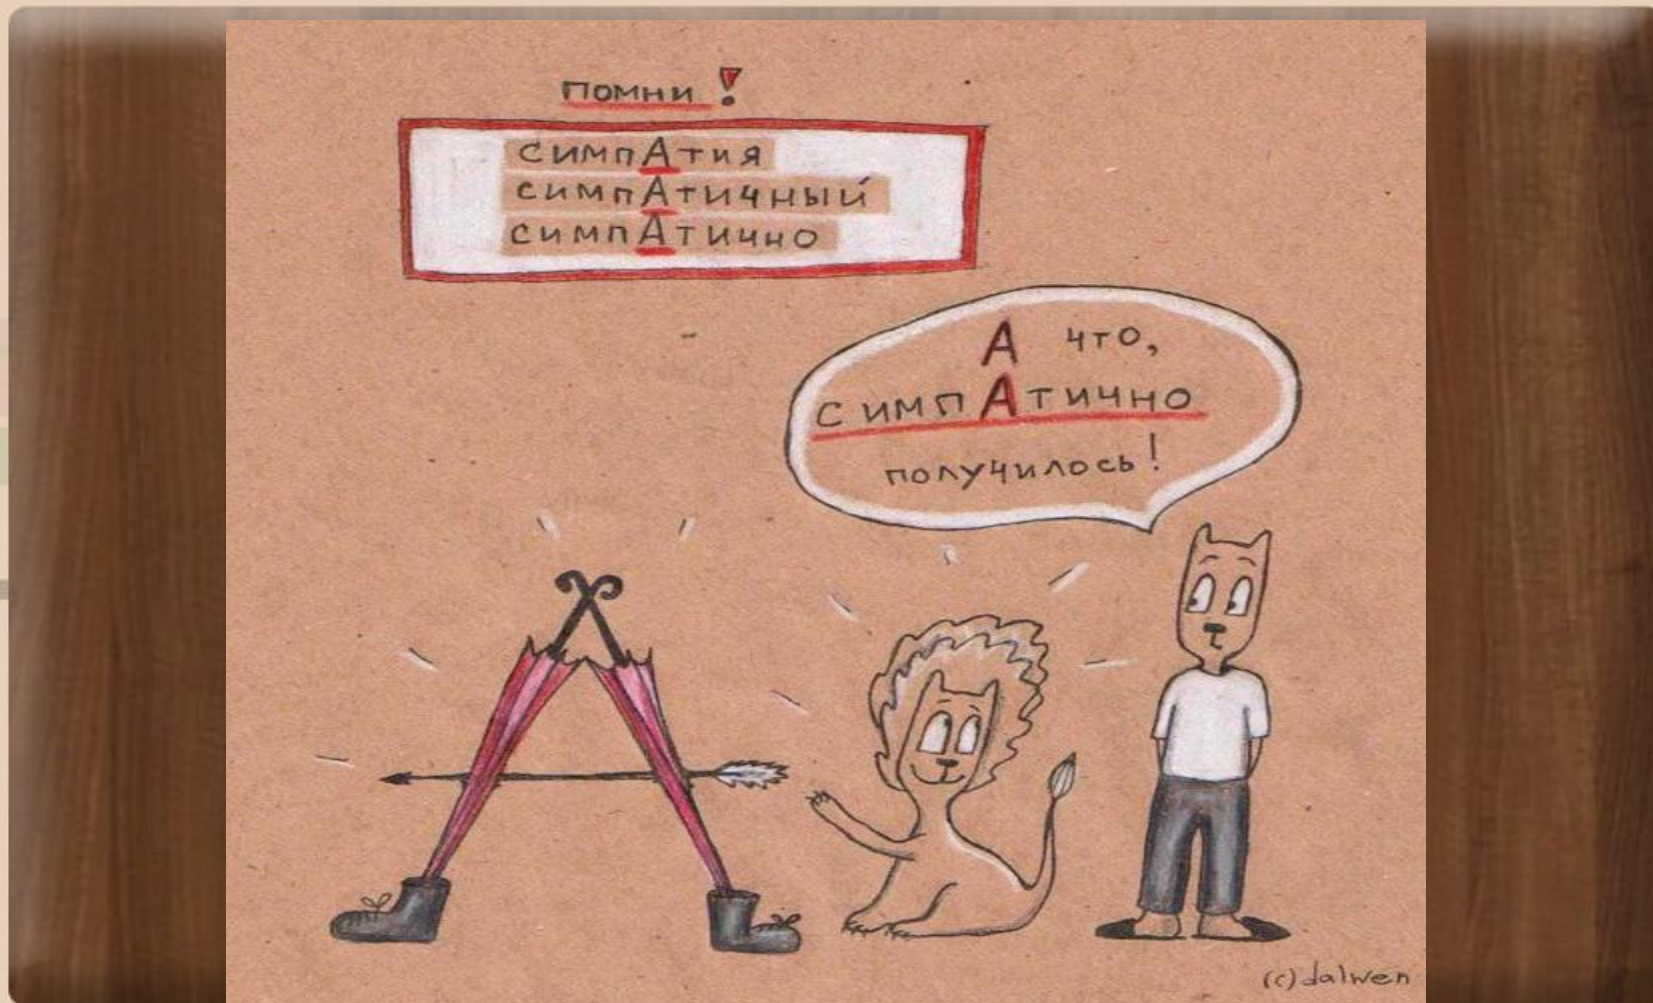 помни!
симпАтия
симпАтичный
симпАтично
А что,
симпАтично
получилось!
(c) dalwen